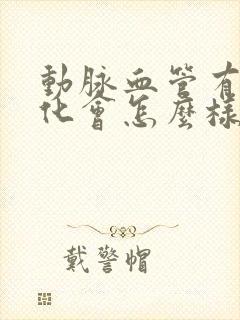 動脈血管有
化會怎麼樣
戴警帽